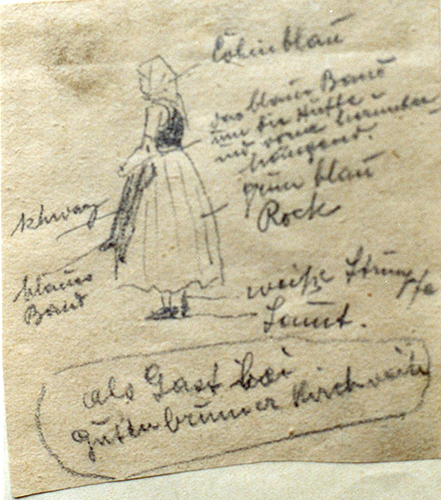 das blaue Band
um die Hüfte
und vorne herunter
hängend.
grün blau
Rock
schwarz
blaues
Band
weiße Strümpfe
Samt.
als Gast bei
Guttenbrunner Kirchweih